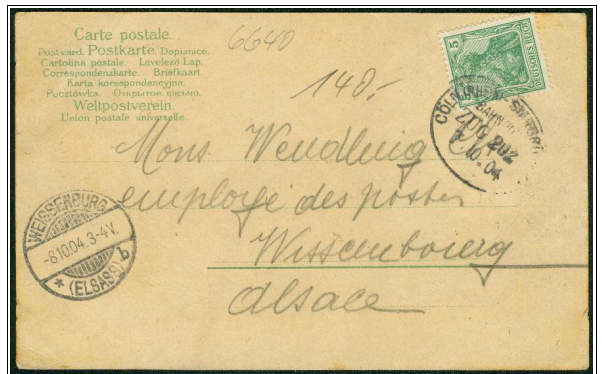 Carte postale.
Postcard. Postkarte. Dopisnice.
Cartolina postale. Levelező-Lap.
Correspondenzkarte. Briefkaart.
Karta korespondencyjna.
Pocztówka. Открытое письмо.
Weltpostverein.
Union postale universelle.
6640
140.-
5
DEUTSCHES REICH
BAHNPOST
ZUG 202
10.04
Mons Wendling
employe des postes
Wissembourg
Alsace
WEISSENBURG
-8.10.04.3-4V.
* (ELSASS) b